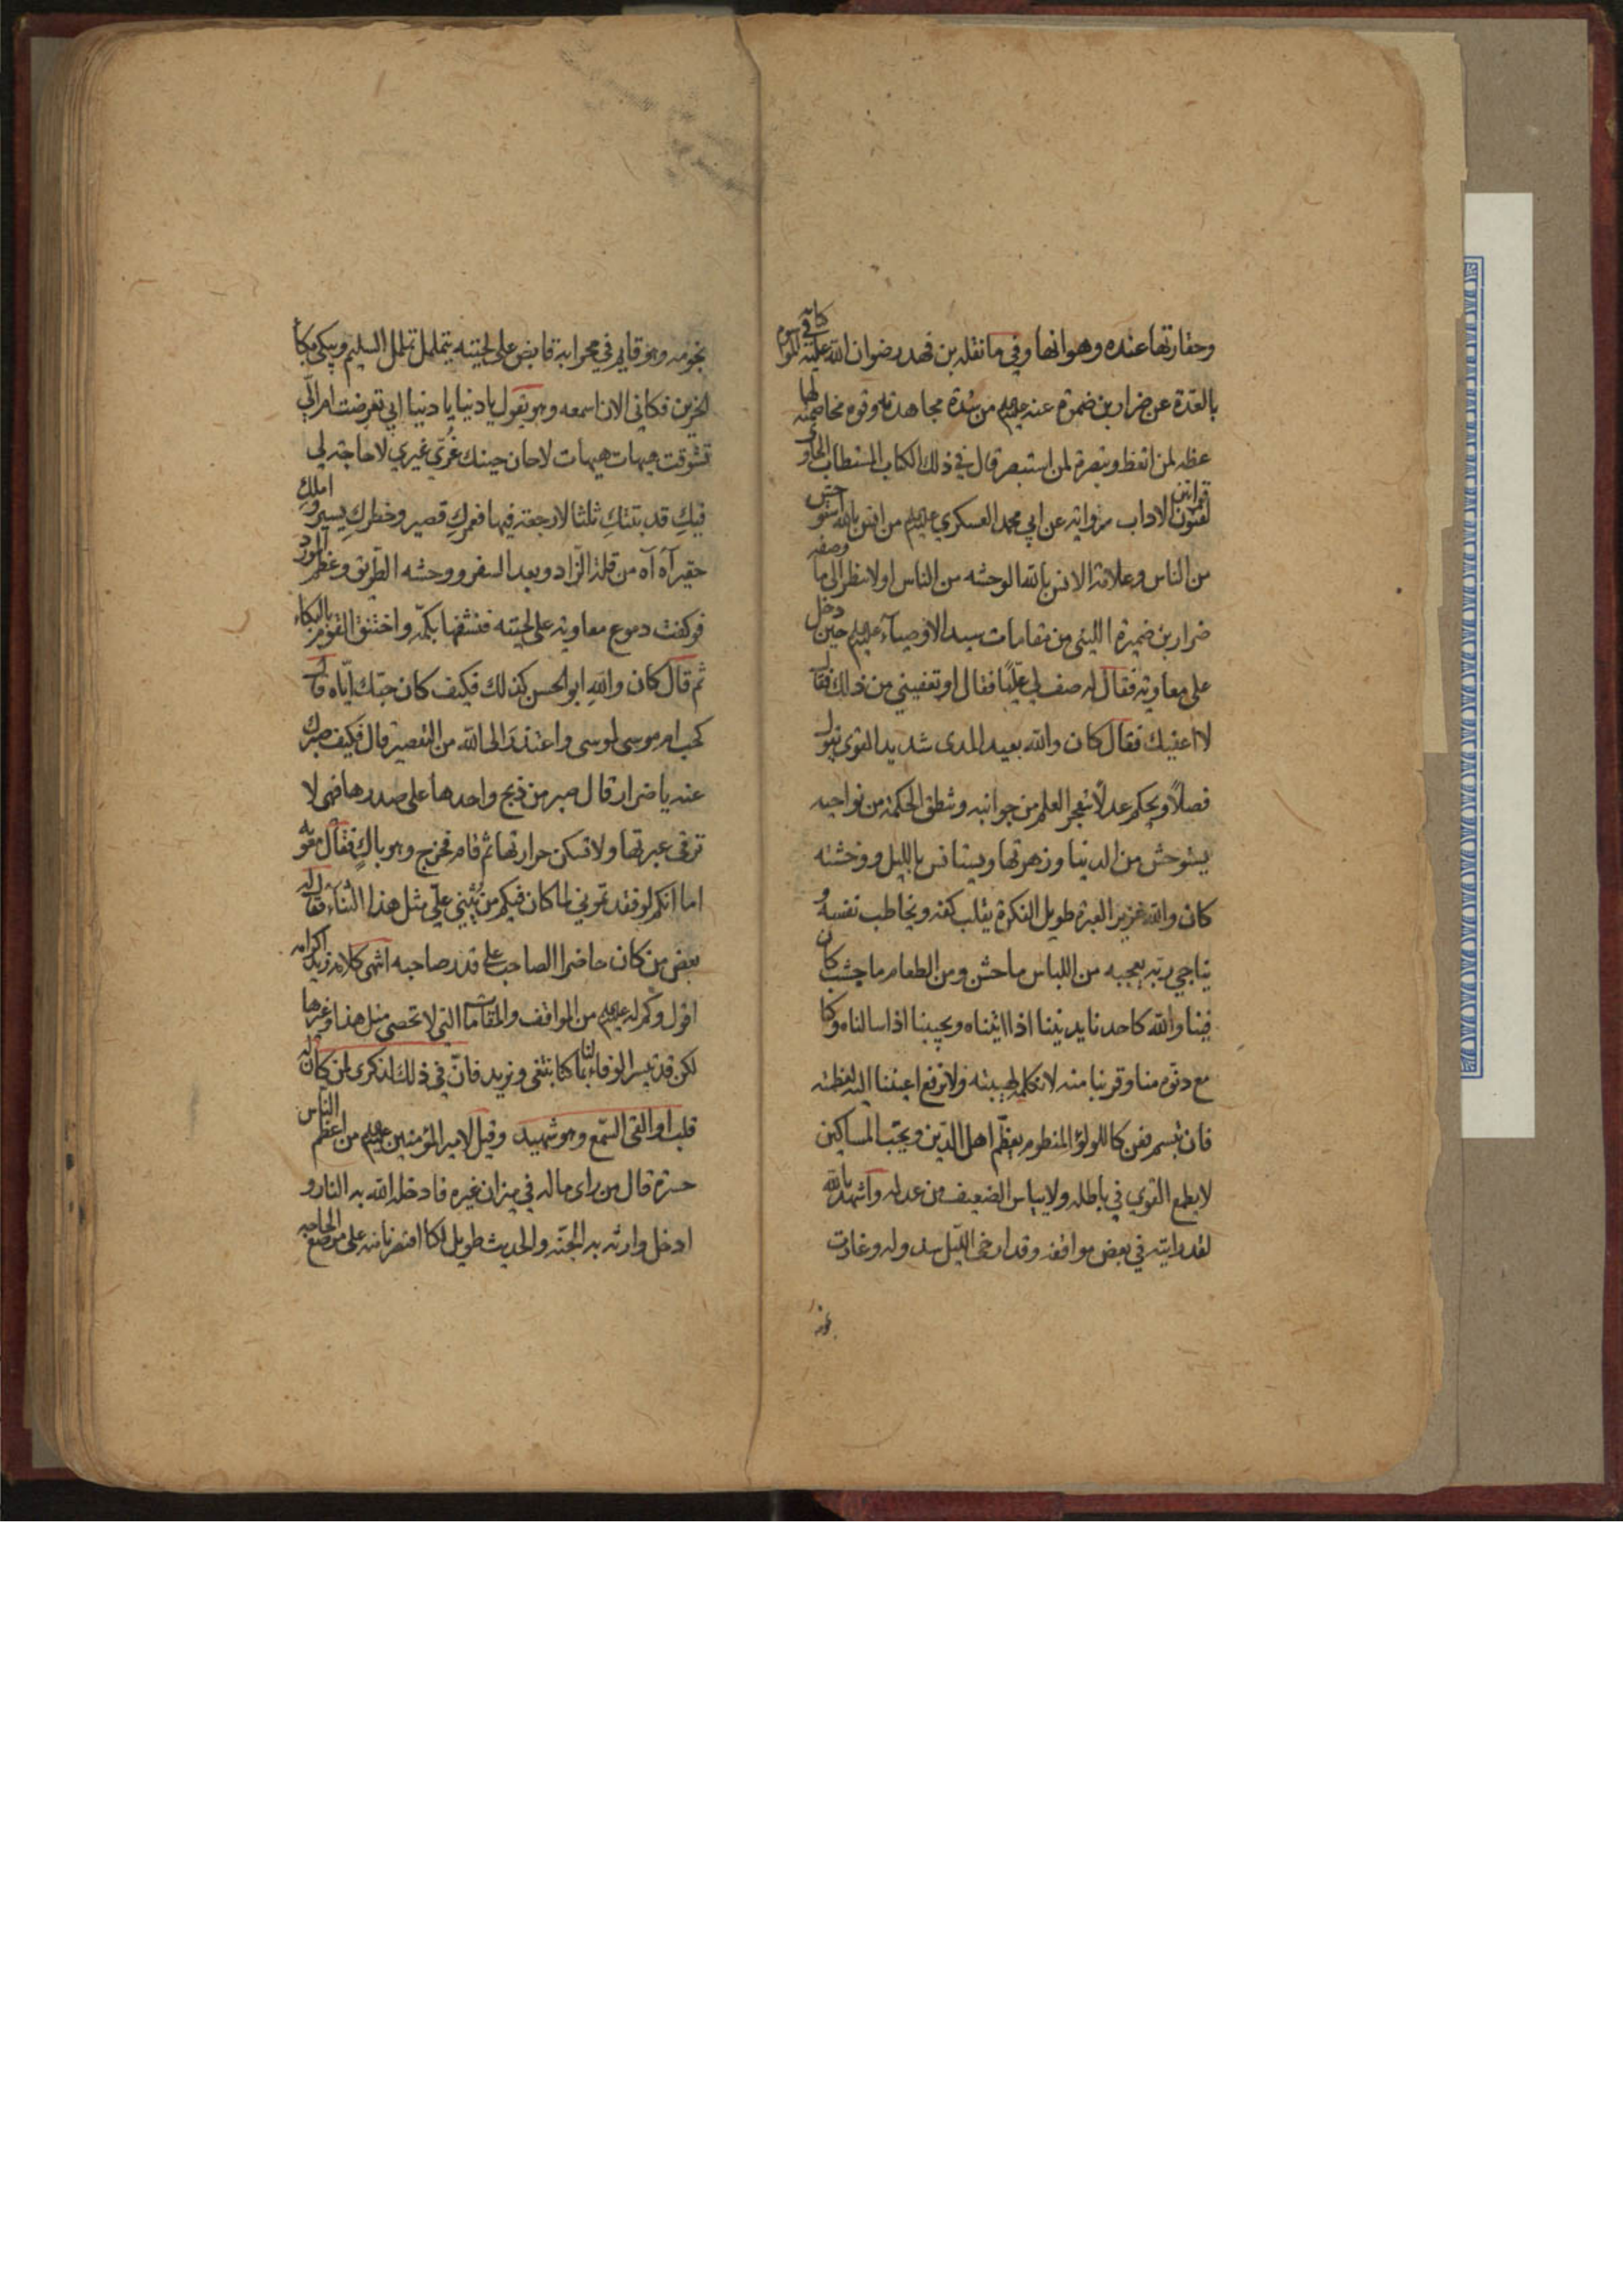 وحقارتها عنده وهوانها وفي ما نقله بن فهد رضوان الله عليه كافي الموسوم
بالعدة عن ضرار بن ضمرة عنه عليه السلم من شدة مجاهدته وقوة مخاصمته لها
عظة لمن اتعظ وتبصرة لمن استبصر قال في ذلك الكتاب المستطاب الحاوي
لفنون قوانين الاداب من رواته عن ابي محمد العسكري عليه السلم من انس بالله استوحش
من الناس وعلامة الانس بالله الوحشه من الناس اولا تنظر الى ما وصفه
ضرار بن ضميرة الليثي من مقامات سيد الاوصيآء عليه السلم حين دخل
على معاويه فقال له صف لي عليّا فقال او تعفيني من ذلك فقال
لا اعفيك فقال كان والله بعيد المدى شديد القوى يقول
فصلاً ويحكم عدلاً يتفجر العلم من جوانبه وتنطق الحكمة من نواحيه
يستوحش من الدنيا وزهرتها ويستانس بالليل ووحشته
كان والله غزير العبرة طويل الفكرة يقلب كفه ويخاطب نفسه و
يناجي ربه يعجبه من اللباس ما خشن ومن الطعام ما جشب كان
فينا والله كاحدنا يدنينا اذا اتيناه ويجيبنا اذا سالناه وكنا
مع دنوه منا وقربنا منه لا نكلمه لهيبته ولا نرفع اعيننا اليه لعظمته
فان تبسم فعن كاللولؤ المنظوم يعظّم اهل الدين ويحب المساكين
لا يطمع القوي في باطله ولا يياس الضعيف من عدله واشهد بالله
لقد رايته في بعض مواقفه وقد ارخى الليل سدوله وغارت
نجومه
نجومه وهو قايم في محرابه قابض على لحيته يتململ تململ السليم ويبكي بكآء
الحزين فكاني الان اسمعه وهو يقول يا دنيا يا دنيا ابي تعرضت ام اليّ
تشوقت هيهات هيهات لا حان حينك غُرّي غيري لا حاجة لي
فيكِ قد بتتكِ ثلثا لا رجعة فيها فعمركِ قصير وخطركِ يسير واملك
حقير آه آه من قلة الزاد وبعد السفر ووحشه الطّريق وعظم المورد
فوكفت دموع معاويه على لحيته فنشفها بكمّه واختنق القوم بالبكاء
ثم قال كان واللهِ ابو الحسن كذلك فكيف كان حبّك ايّاه قال
كحب ام موسى لموسى واعتذر الى الله من التقصير قال فكيف صبرك
عنه يا ضرار قال صبر من ذبح واحدها على صدرها فهي لا
ترقى عبرتها ولا تسكن حرارتها ثم قام فخرج وهو باكٍ فقال معويه
اما انكم لو فقدتموني لما كان فيكم من يثني عليّ مثل هذا الثناء فقال له
بعض من كان حاضرا الصاحب على قدر صاحبه انتهى كلامه زيد اكرامه
اقول وكم له عليه السلم من المواقف والمقامات التي لا تحصى مثل هذا وغيرها
لكن قد تيسر الوفاء لنا بما كنا نبتغي ونريد فانّ في ذلك لذكرى لمن كان له
قلب او القى السّمع وهو شهيد وقيل لامير المؤمنين عليه السلم من اعظم الناس
حسرة قال من راى ماله في ميزان غيره فادخله الله به النار و
ادخل وارثه به الجنّه والحديث طويل لكنا اقتصرنا منه على موضع الحاجه